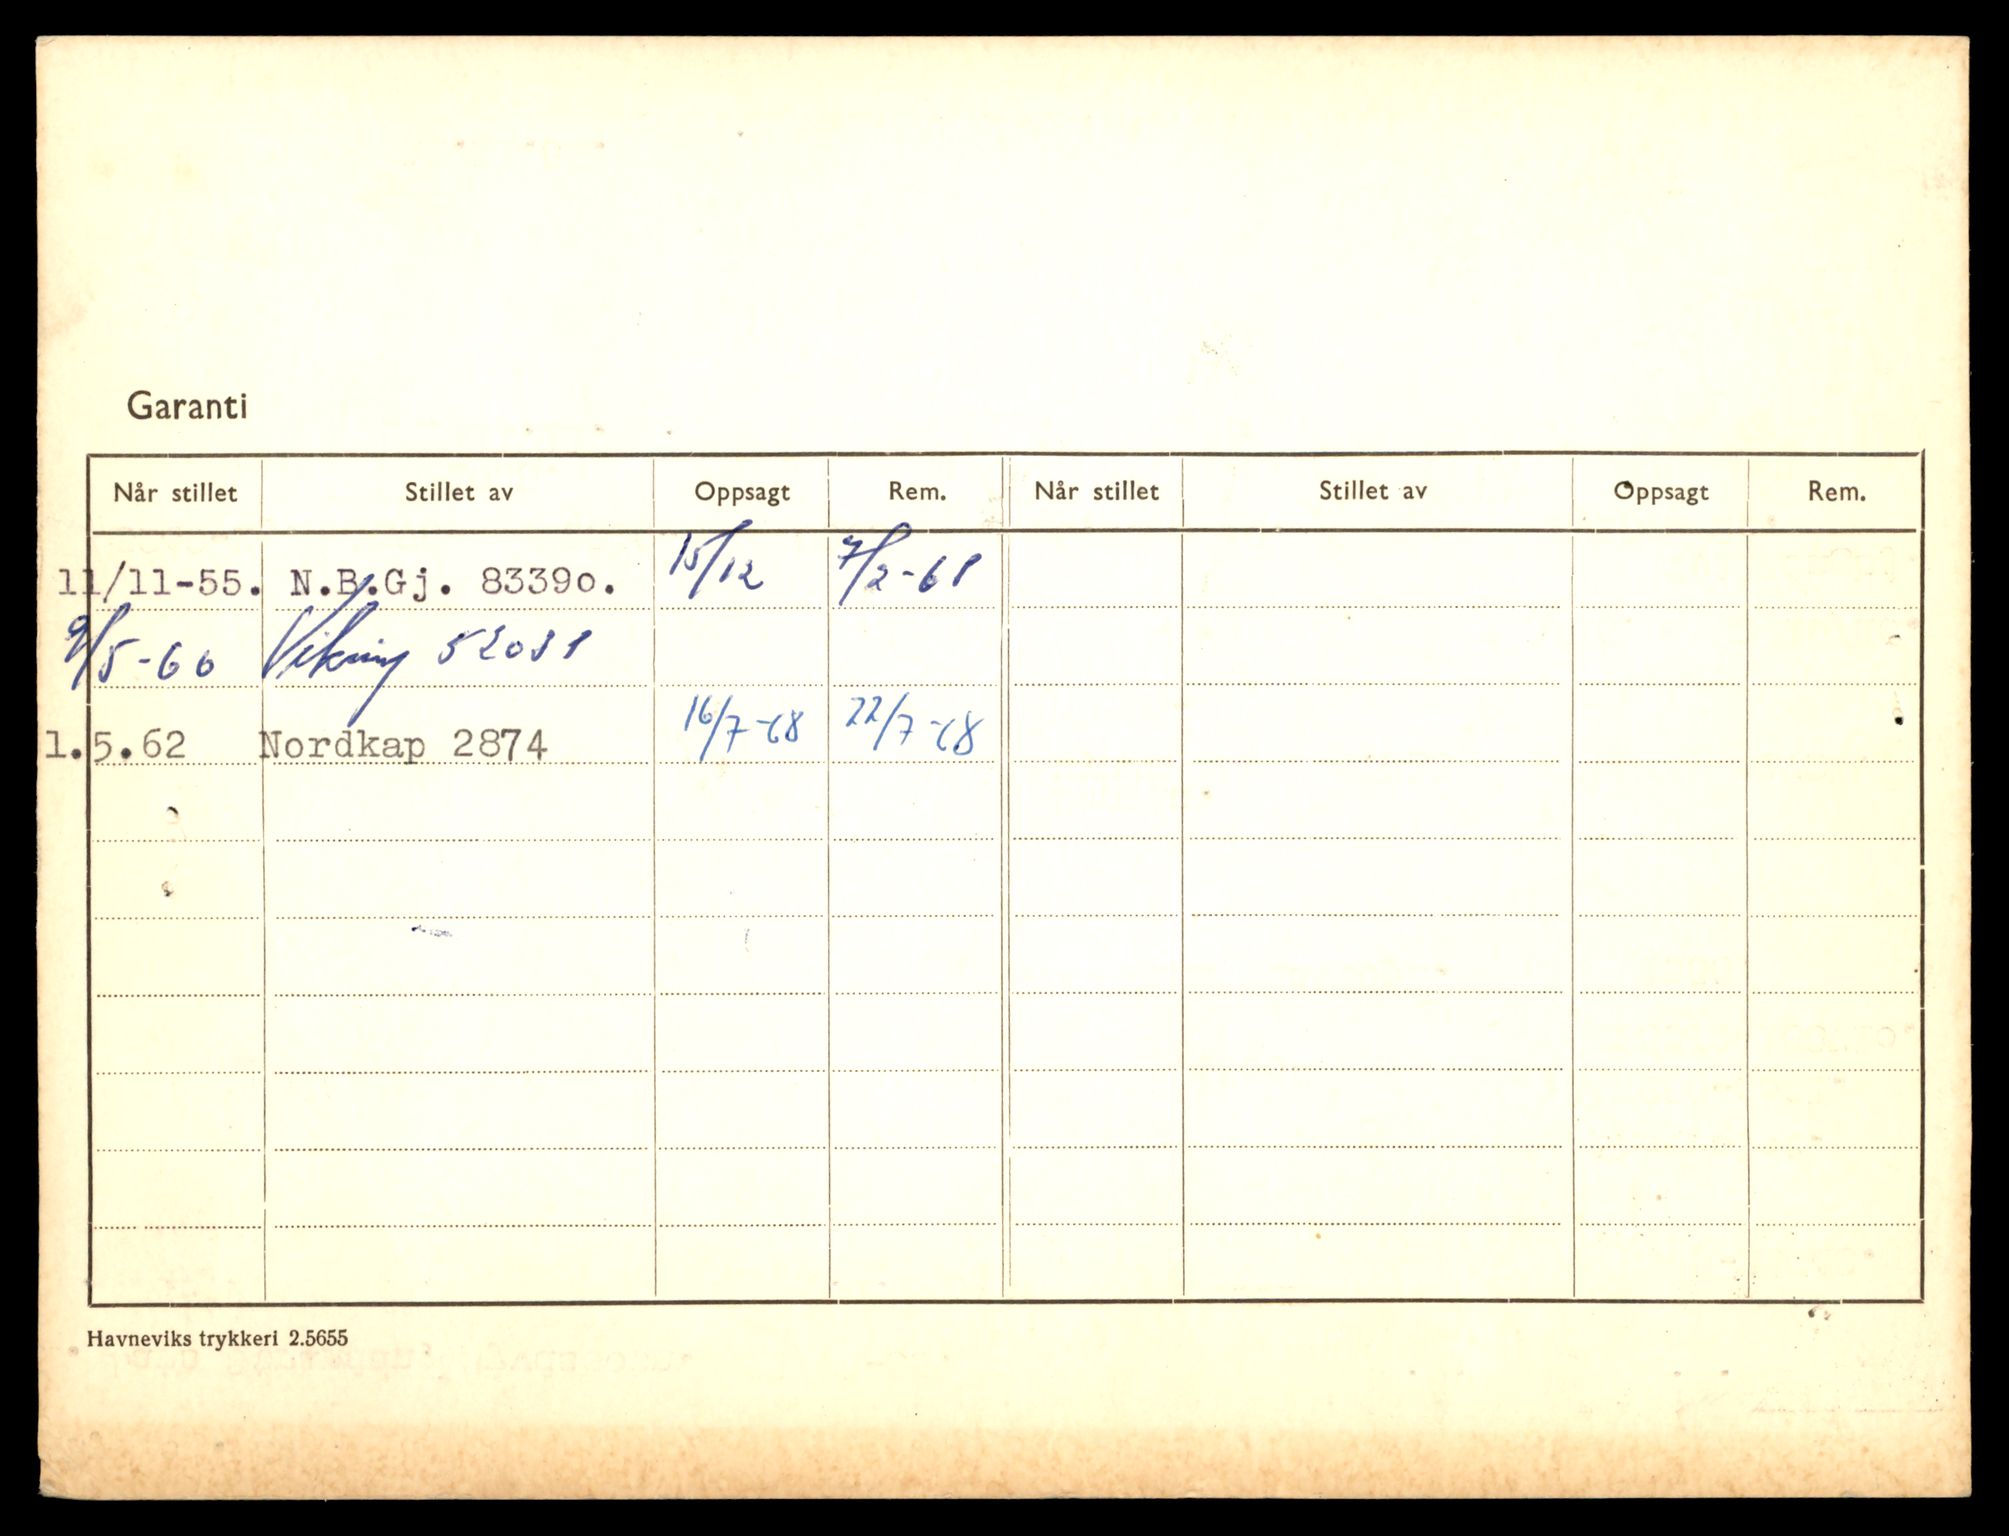 Garanti
Når stillet Stillet av Oppsagt Rem. Når stillet Stillet av Oppsagt Rem.
11/11-55. N.B.Gj. 8339o. 15/12 7/2-61
9/5-60 Viking 52031
1.5.62 Nordkap 2874 16/7-68 22/7-68
Havneviks trykkeri 2.5655